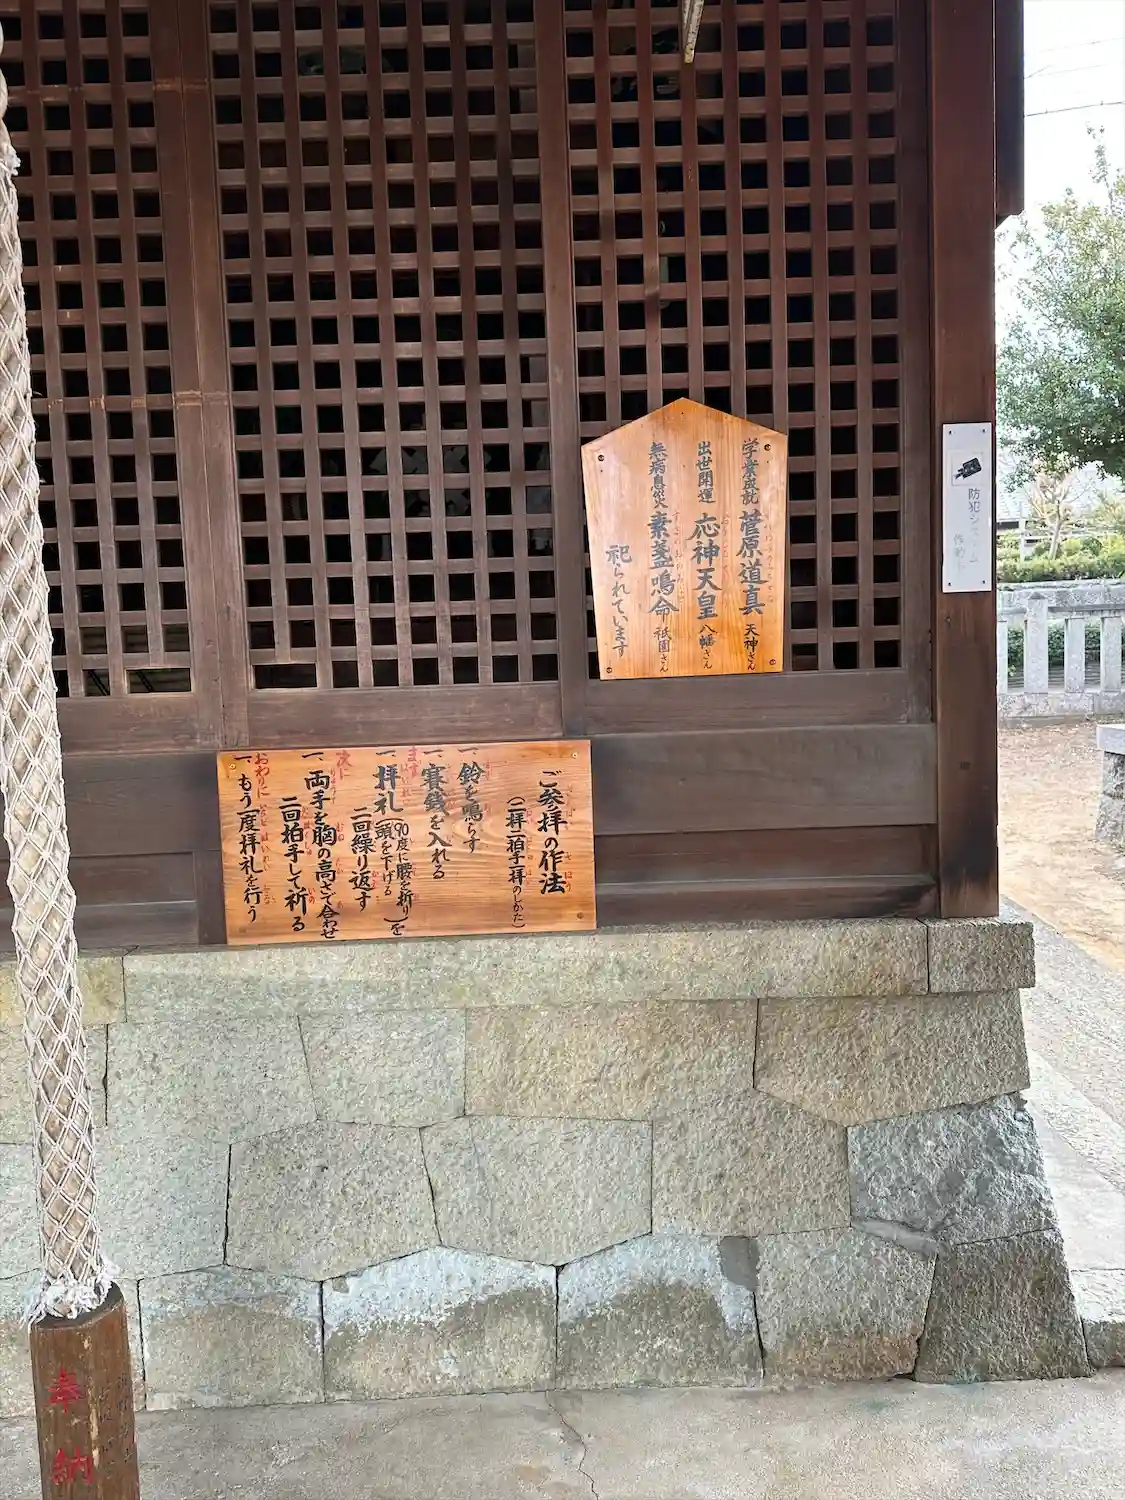 学業成就 菅原道真 天神さん
出世開運 応神天皇 八幡さん
無病息災 素盞鳴命 祇園さん
祀られています
防犯システム
作動中
ご参拝の作法
(二拝二拍手一拝のしかた)
一、鈴を鳴らす
一、賽銭を入れる
まず
一、拝礼(90度に腰を折り頭を下げる)を
二回繰り返す
次に
一、両手を胸の高さで合わせ
二回拍手して祈る
おわりに
一、もう一度拝礼を行う
奉納